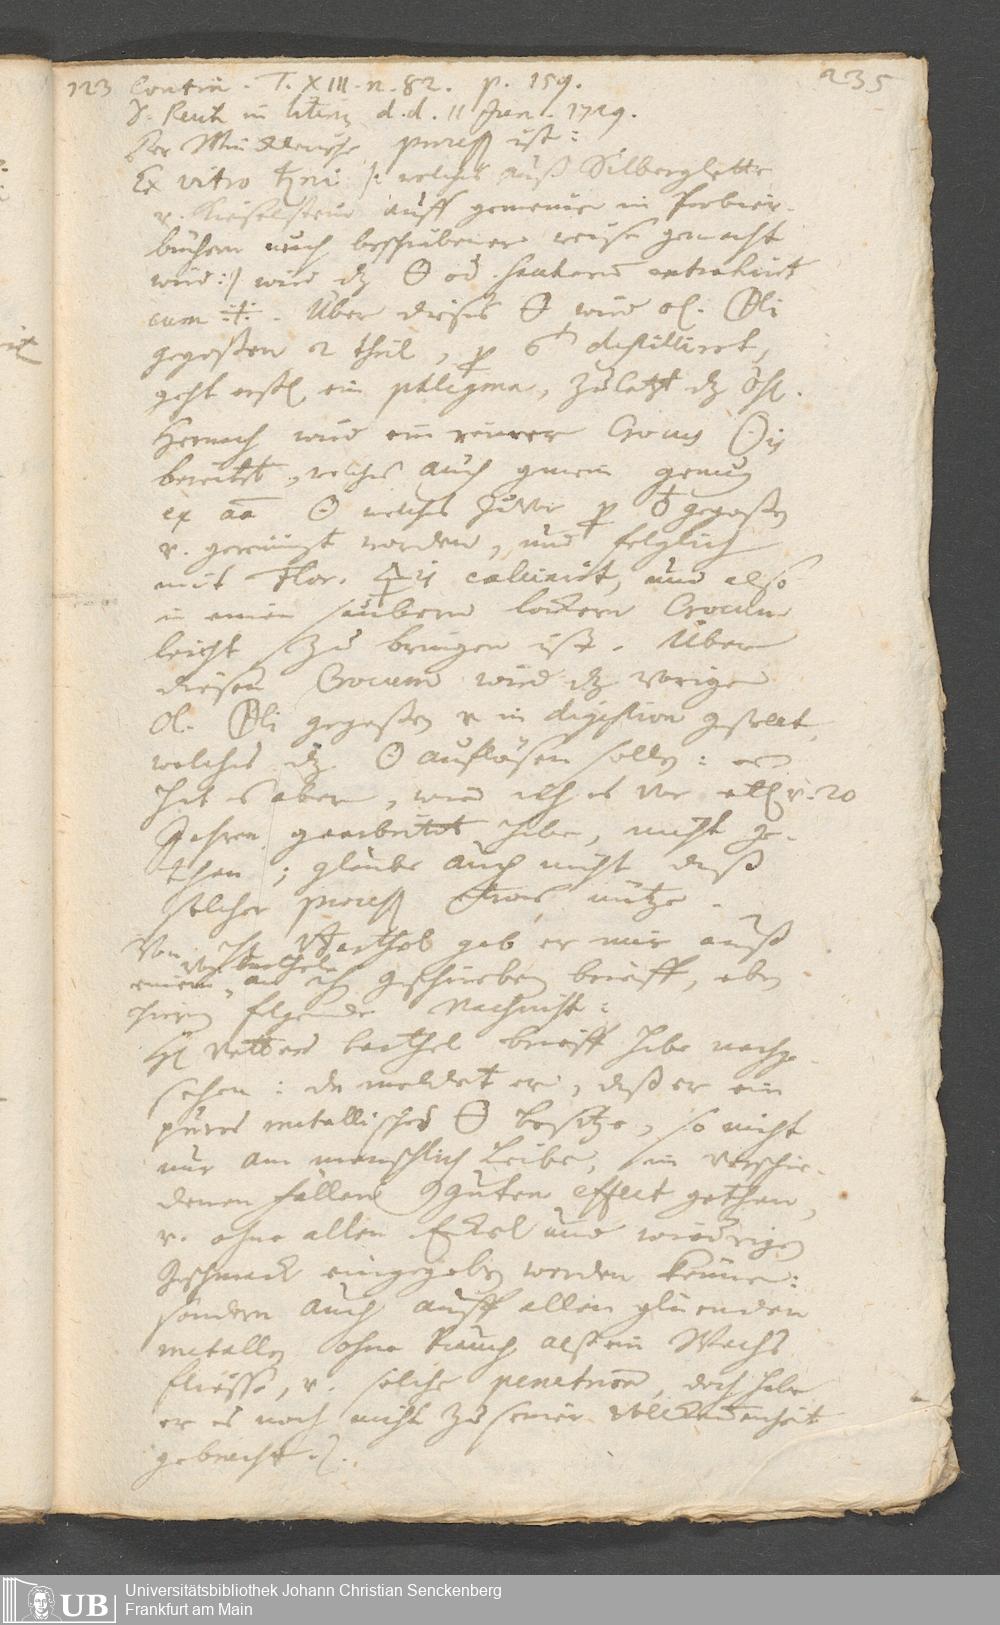 123 Contin. T. XIII. n. 82. p. 159.
235
D. Reuk in literis d. d. 11 Jun. 1729.
process ist:
Ex vitro ♄ni /: welches auß Silberglette
v. Kieselstein auff gemeine in Probier-
büchern auch beschriebener weise gemacht
wird :/ wird dz 🜔 od. extrahirt
cum . Über dieses 🜔 wird ol. 🜖li
gegoßen 2 theil, destillirt,
geht erstl ein phlegma, zuletzt dz öhl.
Hernach wird ein Crocus ☉is
bereitet, welches auch gmein genug
ex aa ☉ welches zuvor p ♁ gegoßen
v. gereinigt worden, und folglich
mit Flor. 🜍is calcinirt, und also
in einen saubern lockern Crocum
leicht zu bringen ist. Über
diesen Crocum wird dz vorige
Ol. 🜖li gegoßen v. in digestion gestellt,
welches dz ☉ auflösen solle: es
hat es aber, wie ich es vor etl. v. 20
Jahren gearbeitet habe, nicht ge-
than; glaube auch nicht daß
solcher process etwas nütze.
Von gab er mir auß
einem an ihn geschrieben brieff, eben
folgende Nachricht:
H. Vetters barthel brieff habe nachge-
sehen: da meldet er, daß er ein
pures metallisches 🜔 besitze, so nicht
nur am menschlich Leibe, in verschie-
denen fällen guten effect gethan,
v. ohne allen Eckel und wiedrigen
Geschmack eingegeben werden könne:
sondern auch auff allen glüenden
metallen ohne Rauch alß ein Wachs
fliesse, v. solche penetrire, doch habe
er es noch nicht zu seiner Vollkommenheit
gebracht.
Universitätsbibliothek Johann Christian Senckenberg
Frankfurt am Main
UB